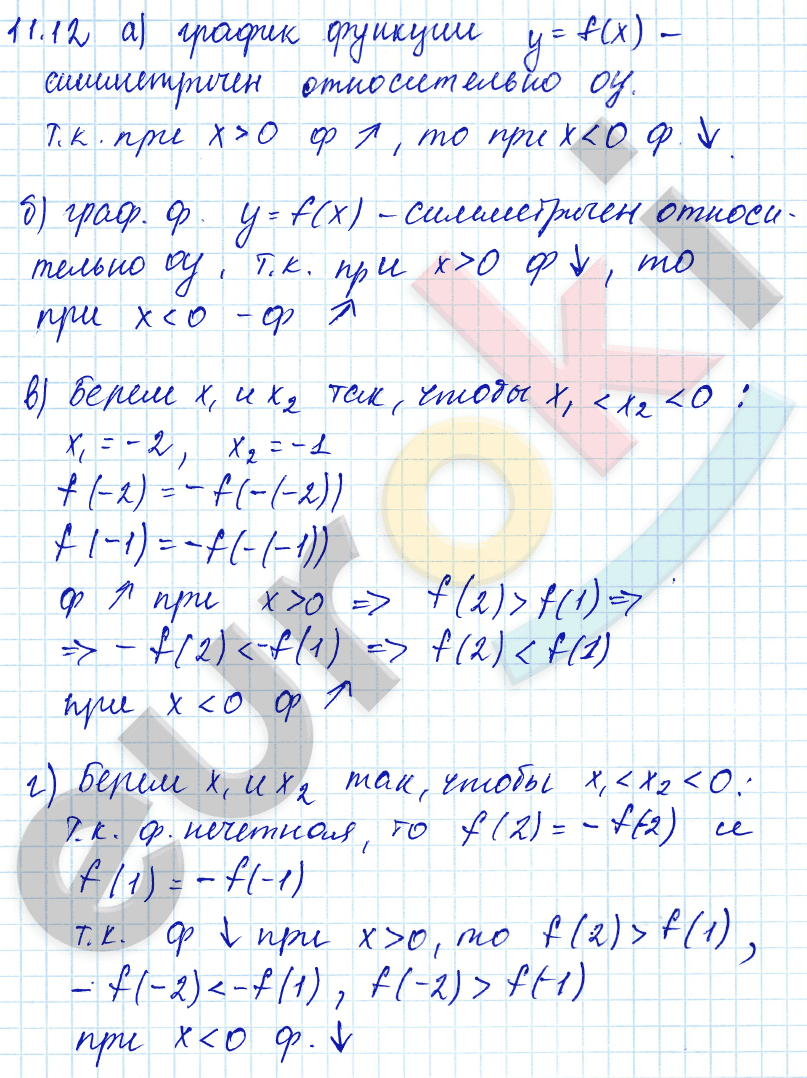 11.12 а) график функции y = f(x) –
симметричен относительно оу.
т.к. при x > 0 ф ↑, то при x < 0 ф. ↓.
б) граф. ф. y = f(x) – симметричен относи-
тельно оу, т.к. при x > 0 ф ↓, то
при x < 0 – ф ↑
в) Берем x₁ и x₂ так, чтобы x₁ < x₂ < 0 :
x₁ = -2, x₂ = -1
f(-2) = -f(-(-2))
f(-1) = -f(-(-1))
ф ↑ при x > 0 => f(2) > f(1) =>
=> -f(2) < -f(1) => f(2) < f(1)
при x < 0 ф ↑
г) Берем x₁ и x₂ так, чтобы x₁ < x₂ < 0 :
т.к. ф. нечетная, то f(2) = -f(-2) и
f(1) = -f(-1)
т.к. ф ↓ при x > 0, то f(2) > f(1),
-f(-2) < -f(1), f(-2) > f(-1)
при x < 0 ф. ↓
euroki